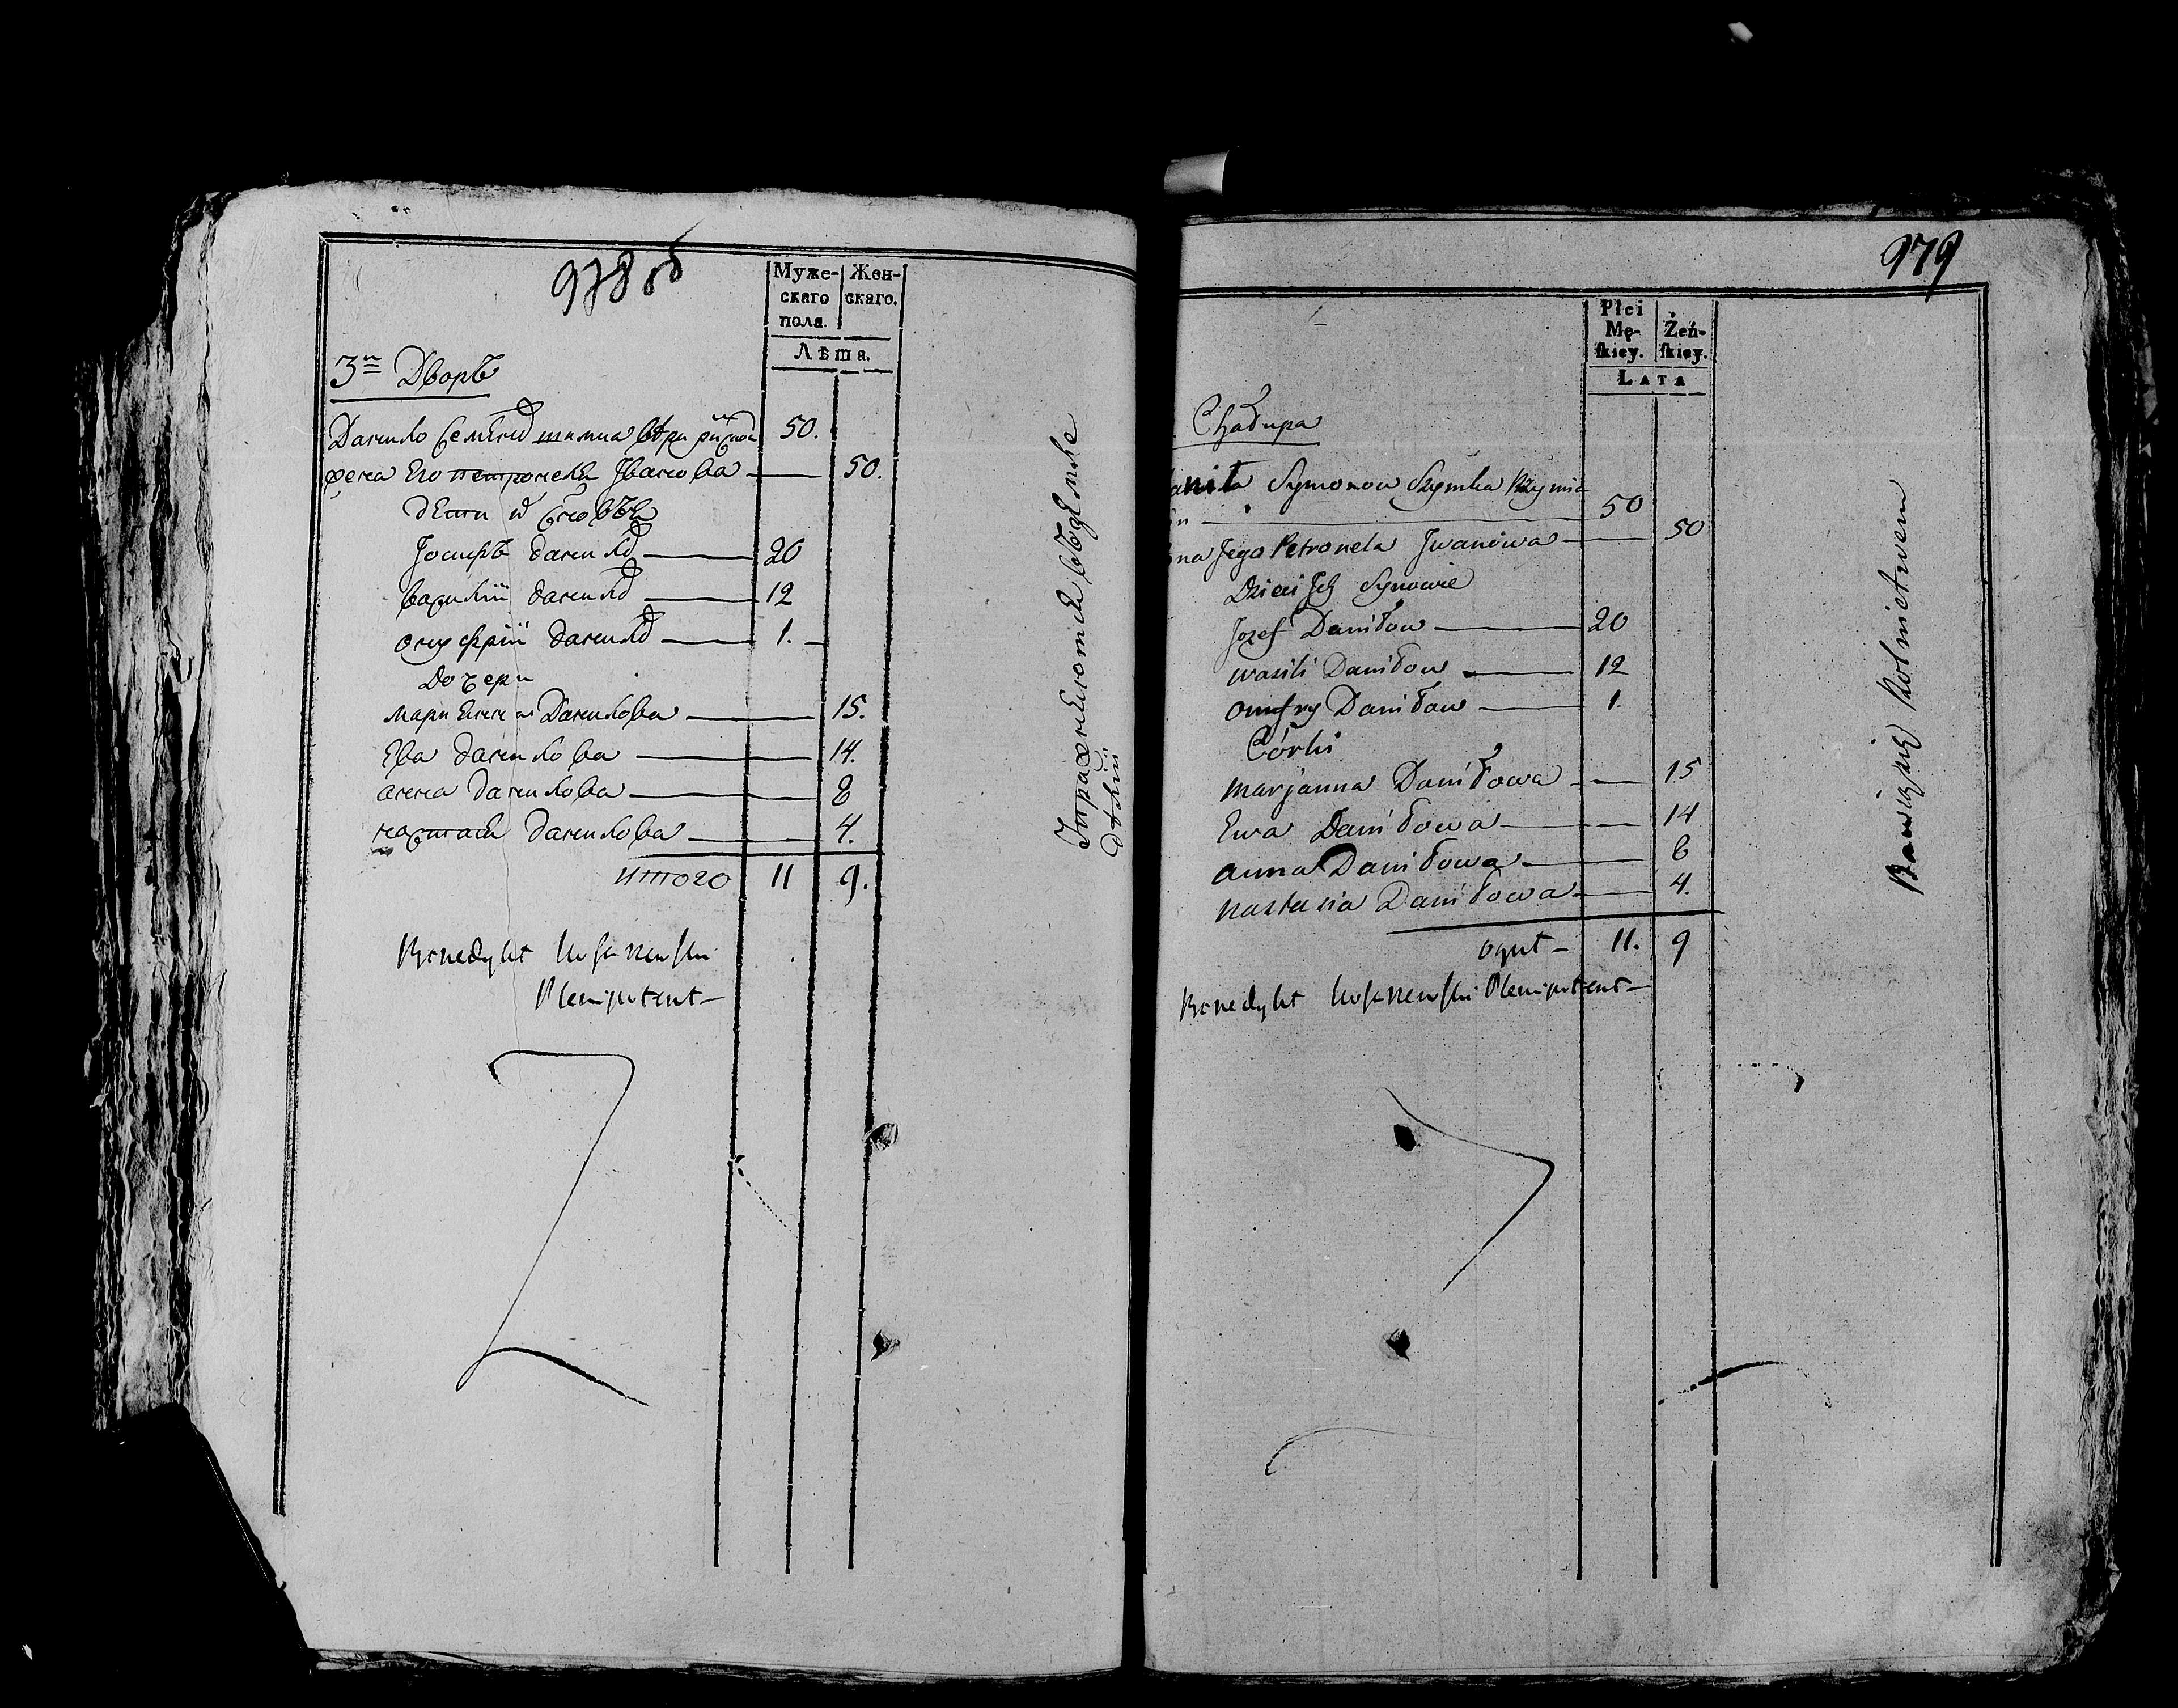 978 об
Муже-
скаго
пола.
Жен-
скаго.
Лѣта.
3й Дворъ
Данило Семеновъ 50.
жена Его Петронеля Іванова 50.
дети их Сыновья
Іосифъ Данилов 20
Василій Данилов 12
Онуфрій Данилов 1.
Дочери
Марианна Данилова 15.
Ева Данилова 14.
Анна Данилова 8
Настасія Данилова 4.
итого 11 9.
Benedykt
Plenipotent
979
Płci
Mę-
skiey.
Żeń-
skiey.
Lata
Chałupa
Symonow 50
Jego Petronela Jwanowa 50
Dzieci Jch Synowie
Jozef Daniłow 20
Wasili Daniłow 12
Onufry Daniłow 1.
Córki
Marjanna Daniłowa 15
Ewa Daniłowa 14
Anna Daniłowa 8
Nastasia Daniłowa 4.
oguł 11. 9
Benedykt Plenipotent
Rolnictwem